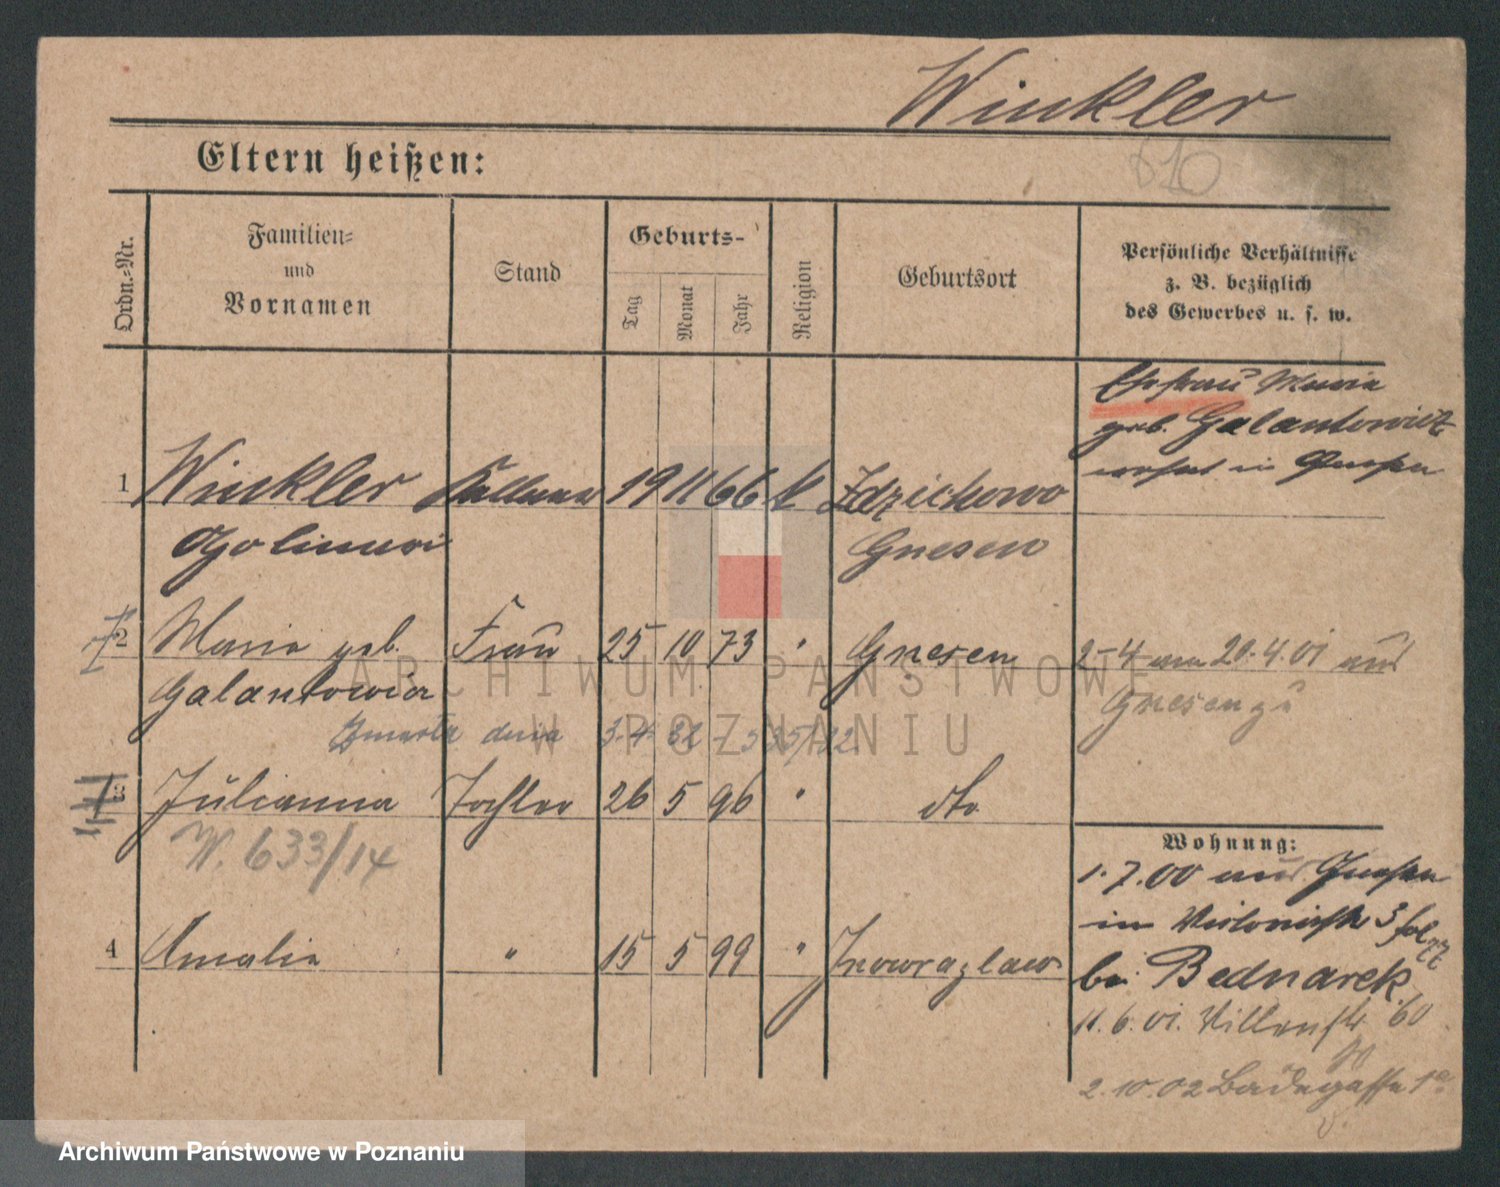 Winkler
610
Eltern heißen:
Ordn.-Nr.
Familien-
und
Vornamen
Stand
Geburts-
Tag
Monat
Jahr
Religion
Geburtsort
Persönliche Verhältnisse
z. B. bezüglich
des Gewerbes u. s. w.
Ehefrau Maria
geb. Galantowicz
wohnt in Gnesen
1 Winkler Kellner 19 11 66 k Zdziechowo
Gnesen
2 Maria geb. Frau 25 10 73 " Gnesen
2-4 am 20.4.01 aus
Galantowicz
Gnesen zu
Zmarła dnia 3.4.32
3 Julianna Tochter 26 5 96 " dto
W. 633/14
Wohnung:
1.7.00 aus Gnesen
in 3
4 Amalie " 15 5 99 " Inowrazlaw
bei Bednarek
11.6.01. 60
2.10.02 Badegasse 1a
ARCHIWUM PAŃSTWOWE
W POZNANIU
Archiwum Państwowe w Poznaniu